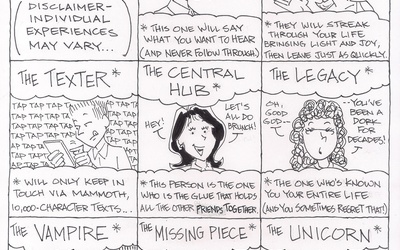 DISCLAIMER-
INDIVIDUAL
EXPERIENCES
MAY VARY...
*THIS ONE WILL SAY
WHAT YOU WANT TO HEAR
(AND NEVER FOLLOW THROUGH)
*THEY WILL STREAK
THROUGH YOUR LIFE
BRINGING LIGHT AND JOY,
THEN LEAVE JUST AS QUICKLY.
THE TEXTER*
TAP TAP TAP TAP TAP TAP
TAP TAP
TAP TAP
TAP TAP
TAP TAP
TAP TAP
TAP TAP
*WILL ONLY KEEP IN
TOUCH VIA MAMMOTH,
10,000-CHARACTER TEXTS...
THE CENTRAL
HUB*
HEY!
LET'S
ALL DO
BRUNCH!
*THIS PERSON IS THE ONE
WHO IS THE GLUE THAT HOLDS
ALL THE OTHER FRIENDS TOGETHER
THE LEGACY*
OH,
GOOD
GOD--
--YOU'VE
BEEN A
DORK
FOR
DECADES!
*THE ONE WHO'S KNOWN
YOU YOUR ENTIRE LIFE
(AND YOU SOMETIMES REGRET THAT!)
THE VAMPIRE*
THE MISSING PIECE*
THE UNICORN*